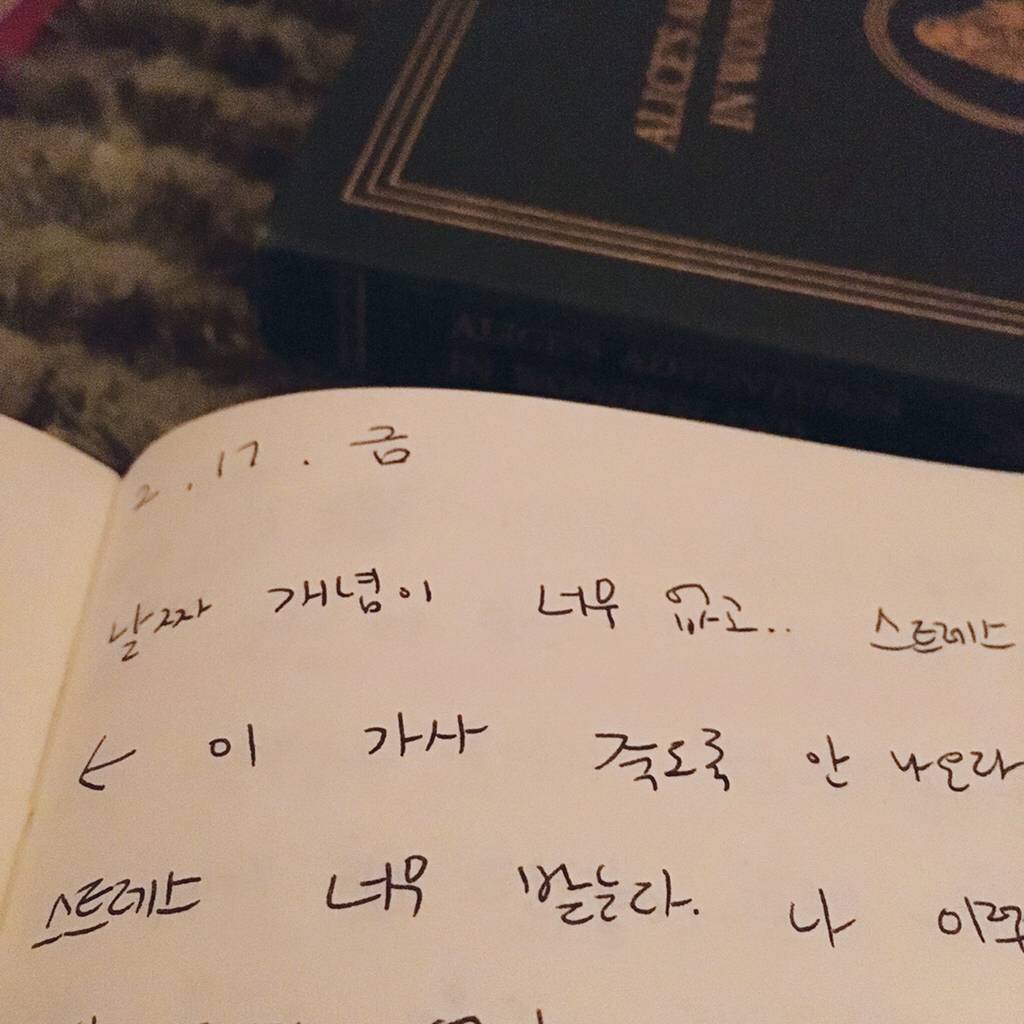 ALICE'S A
IN WOND
ALICE'S ADVENTURES
IN
2.17. 금
날짜 개념이 너무 없고.. 스트레스
← 이 가사 죽도록 안 나오라
스트레스 너무 받는다. 나